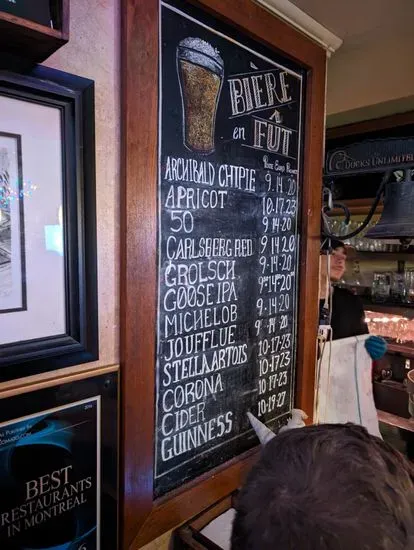 BIÈRE
en
FÛT
ARCHIBALD CHIPIE 9.14.20
APRICOT 10.17.23
50 9.14.20
CARLSBERG RED 9.14.20
GROLSCH 9.14.20
GOOSE IPA 9.14.20
MICHELOB 9.14.20
JOUFFLUE 9.14.20
STELLA ARTOIS 10.17.23
CORONA 10.17.23
CIDER 10.17.23
GUINNESS 10.19.27
DUCKS
BEST
RESTAURANTS
IN MONTREAL